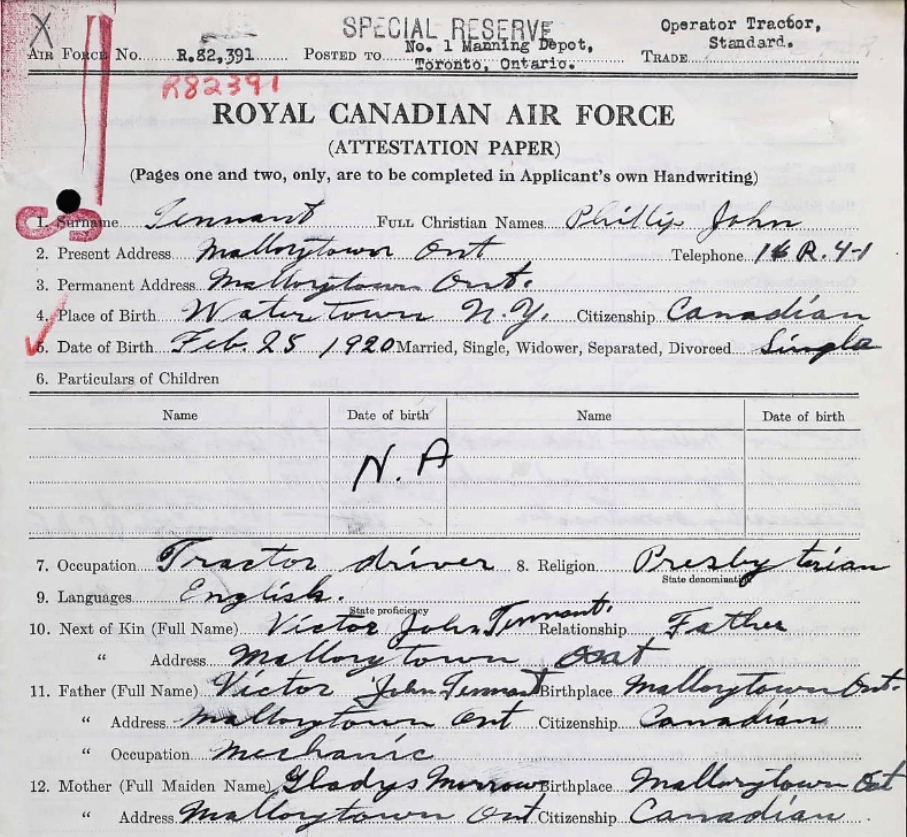 X SPECIAL RESERVE Operator Tractor,
AIR FORCE No. R.82,391 POSTED TO No. 1 Manning Depot, Toronto, Ontario. TRADE Standard.
R82391
ROYAL CANADIAN AIR FORCE
(ATTESTATION PAPER)
(Pages one and two, only, are to be completed in Applicant's own Handwriting)
1. Surname Tennant FULL Christian Names Phillip John
2. Present Address Mallorytown Ont Telephone R. 4-1
3. Permanent Address Mallorytown Ont.
4. Place of Birth Watertown N.Y. Citizenship Canadian
5. Date of Birth Feb. 25 1920 Married, Single, Widower, Separated, Divorced Single
6. Particulars of Children
Name Date of birth Name Date of birth
N. A
7. Occupation Tractor driver 8. Religion Presbyterian
State denomination
9. Languages English.
State proficiency
10. Next of Kin (Full Name) Victor John Tennant. Relationship Father
" Address Mallorytown Ont
11. Father (Full Name) Victor John Tennant Birthplace Mallorytown Ont.
" Address Mallorytown Ont Citizenship Canadian
" Occupation Mechanic
12. Mother (Full Maiden Name) Gladys Morrow Birthplace Mallorytown Ont
" Address Mallorytown Ont Citizenship Canadian